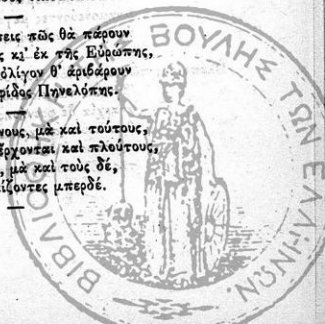 τεις πῶς θὰ πάρουν
ς κι' ἐκ τῆς Εὐρώπης,
ὀλίγον θ' ἀριβάρουν
ρίδος Πηνελόπης.
νους, μὰ καὶ τούτους,
ἔρχονται καὶ πλούτους,
, μὰ καὶ τοὺς δέ,
ίζοντες μπερδέ.
ΒΙΒΛΙΟ ΒΟΥΛΗΣ ΤΩΝ ΕΛΛΗΝΩΝ